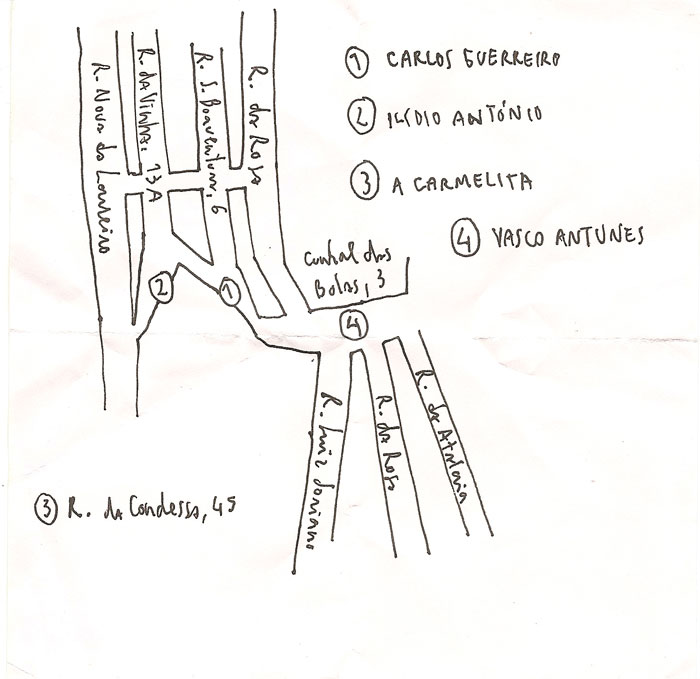 R. Nova do Loureiro
R. da Vinha, 13A
R. S. Boaventura, 6
R. da Rosa
① CARLOS GUERREIRO
② ILÍDIO ANTÓNIO
③ A CARMELITA
④ VASCO ANTUNES
Cunhal das
Bolas, 3
②
①
④
R. Luiz Soriano
R. da Rosa
R. da Atalaia
③ R. da Condessa, 45